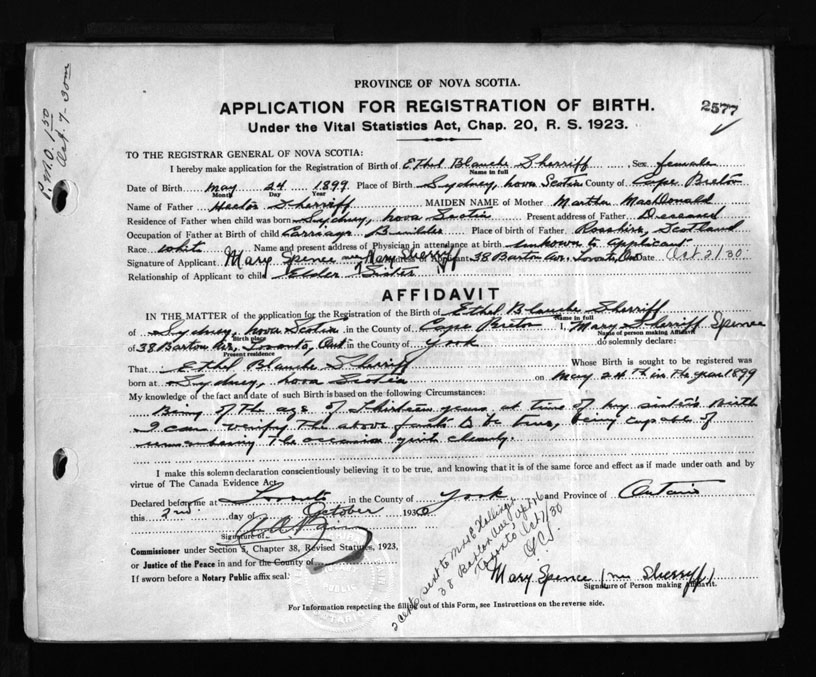 P.M.O. 1.50
Oct. 7-30
PROVINCE OF NOVA SCOTIA.
APPLICATION FOR REGISTRATION OF BIRTH.
2577
Under the Vital Statistics Act, Chap. 20, R. S. 1923.
TO THE REGISTRAR GENERAL OF NOVA SCOTIA:
I hereby make application for the Registration of Birth of Ethel Blanche Sherriff Sex female
Name in full
Date of Birth May 24 1899 Place of Birth Sydney, Nova Scotia County of Cape Breton
Month Day Year
Name of Father Hector Sherriff MAIDEN NAME of Mother Martha MacDonald
Residence of Father when child was born Sydney, Nova Scotia Present address of Father Deceased
Occupation of Father at Birth of child Carriage Builder Place of birth of Father Rosshire, Scotland
Race White Name and present address of Physician in attendance at birth Unknown to applicant
Signature of Applicant Mary Spence nee Mary Sherriff Address of Applicant 38 Barton Av. Toronto, Ont Date Oct 2/30
Relationship of Applicant to child Elder Sister
AFFIDAVIT
IN THE MATTER of the application for the Registration of the Birth of Ethel Blanche Sherriff
Name in full
of Sydney, Nova Scotia in the County of Cape Breton I, Mary Sherriff Spence
Birth place Name of person making Affidavit
of 38 Barton Av., Toronto, Ont in the County of York do solemnly declare:
Present residence
That Ethel Blanche Sherriff Whose Birth is sought to be registered was
born at Sydney, Nova Scotia on May 24th in the year 1899
My knowledge of the fact and date of such Birth is based on the following Circumstances:
Being of the age of Thirteen years, at time of my sister's Birth
I can verify the above facts to be true, being capable of
remembering the occasion quite clearly.
I make this solemn declaration conscientiously believing it to be true, and knowing that it is of the same force and effect as if made under oath and by
virtue of The Canada Evidence Act.
Declared before me at Toronto in the County of York and Province of Ontario
this 2nd day of October 1930
Signature of
Commissioner under Section 5, Chapter 38, Revised Statutes, 1923,
or Justice of the Peace in and for the County of
If sworn before a Notary Public affix seal.
2 certs sent to Mrs
38 Barton Ave
Toronto Oct 7/30
Mary Spence (nee Sherriff)
Signature of Person making Affidavit.
For Information respecting the filling out of this Form, see Instructions on the reverse side.